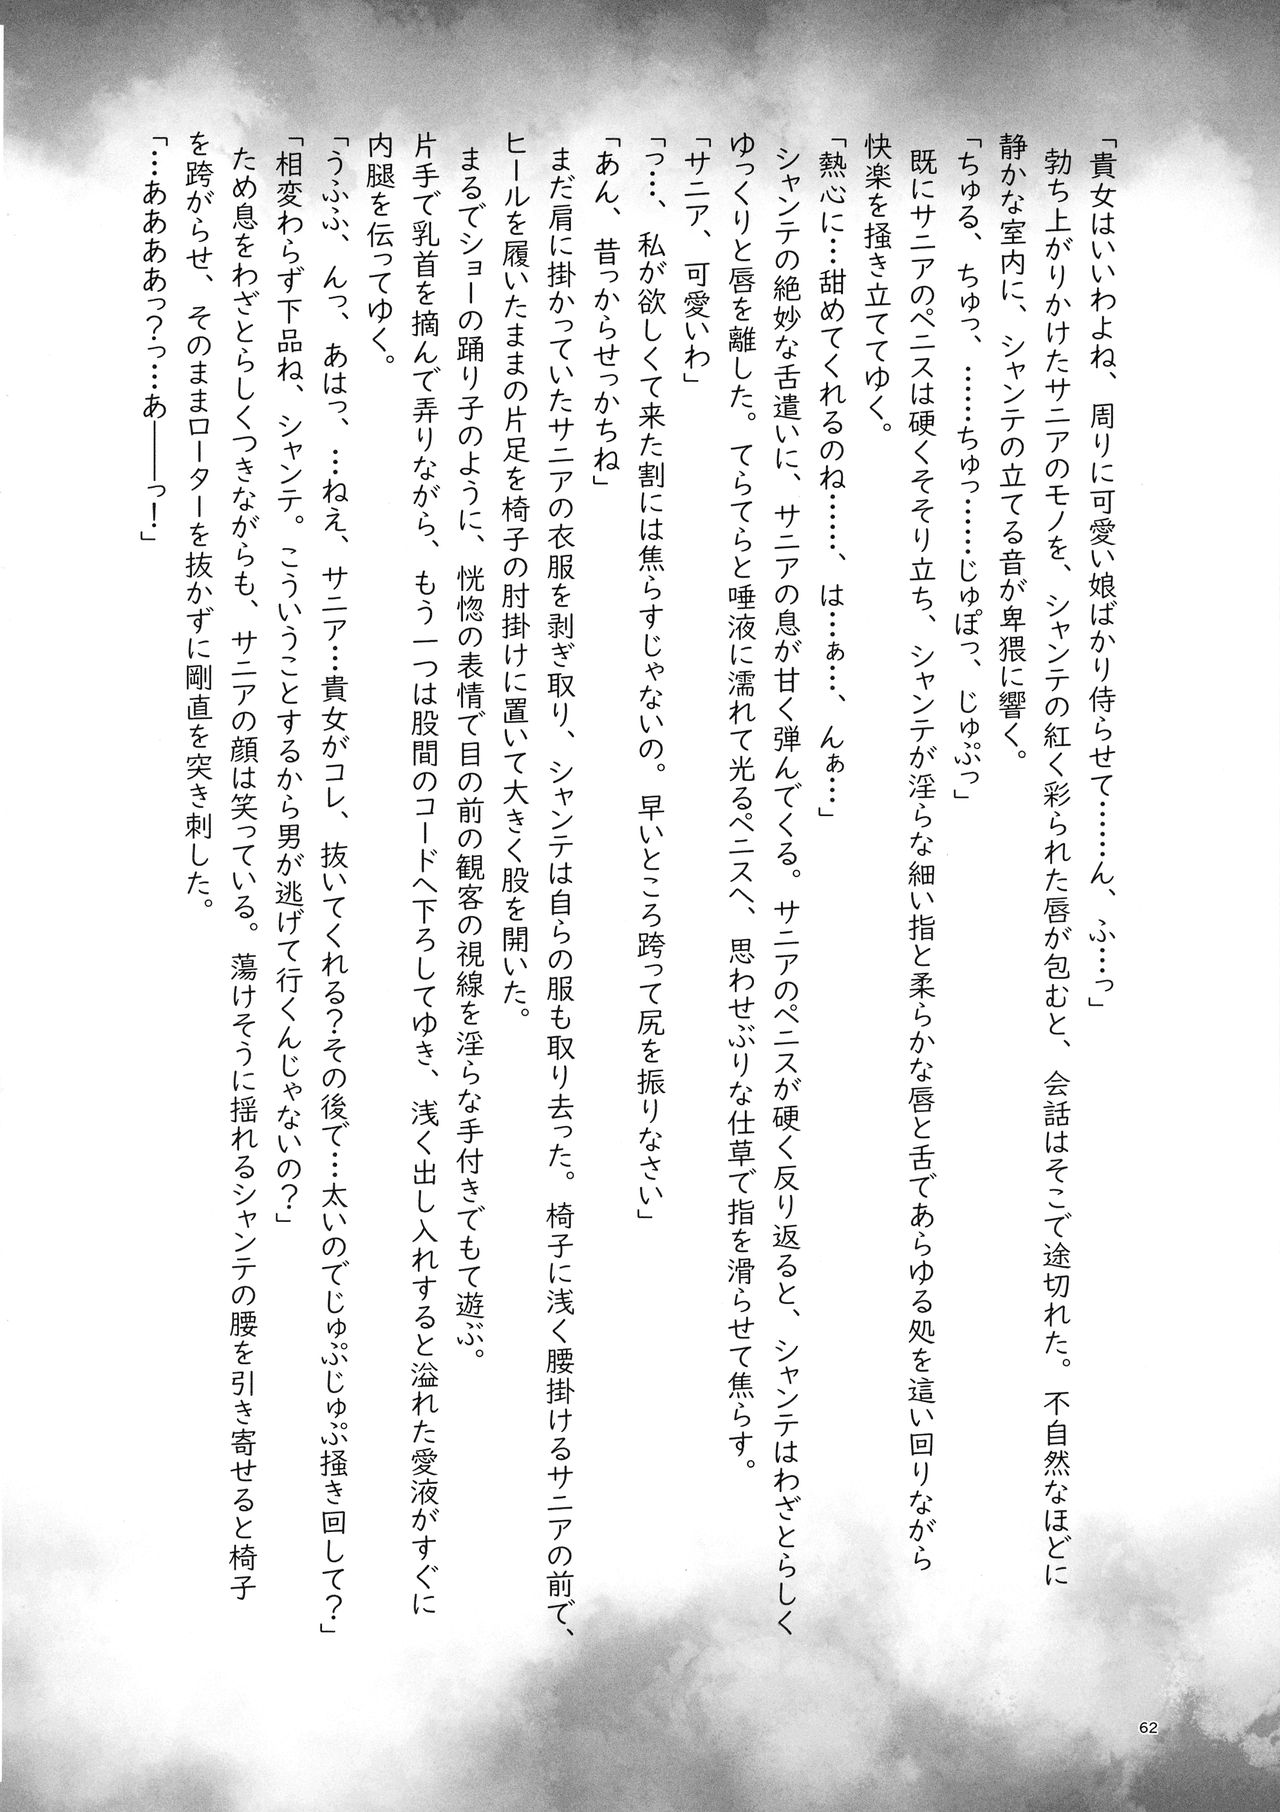 「貴女はいいわよね、周りに可愛い娘ばかり侍らせて……ん、ふ…っ」
勃ち上がりかけたサニアのモノを、シャンテの紅く彩られた唇が包むと、会話はそこで途切れた。不自然なほどに
静かな室内に、シャンテの立てる音が卑猥に響く。
「ちゅる、ちゅっ、……ちゅっ……じゅぽっ、じゅぷっ」
既にサニアのペニスは硬くそそり立ち、シャンテが淫らな細い指と柔らかな唇と舌であらゆる処を這い回りながら
快楽を掻き立ててゆく。
「熱心に…舐めてくれるのね……、は…ぁ…、んぁ…」
シャンテの絶妙な舌遣いに、サニアの息が甘く弾んでくる。サニアのペニスが硬く反り返ると、シャンテはわざとらしく
ゆっくりと唇を離した。てらてらと唾液に濡れて光るペニスへ、思わせぶりな仕草で指を滑らせて焦らす。
「サニア、可愛いわ」
「っ…、私が欲しくて来た割には焦らすじゃないの。早いところ跨って尻を振りなさい」
「あん、昔っからせっかちね」
まだ肩に掛かっていたサニアの衣服を剥ぎ取り、シャンテは自らの服も取り去った。椅子に浅く腰掛けるサニアの前で、
ヒールを履いたままの片足を椅子の肘掛けに置いて大きく股を開いた。
まるでショーの踊り子のように、恍惚の表情で目の前の観客の視線を淫らな手付きでもて遊ぶ。
片手で乳首を摘んで弄りながら、もう一つは股間のコードへ下ろしてゆき、浅く出し入れすると溢れた愛液がすぐに
内腿を伝ってゆく。
「うふふ、んっ、あはっ、…ねえ、サニア…貴女がコレ、抜いてくれる？その後で…太いのでじゅぷじゅぷ掻き回して？」
「相変わらず下品ね、シャンテ。こういうことするから男が逃げて行くんじゃないの？」
ため息をわざとらしくつきながらも、サニアの顔は笑っている。蕩けそうに揺れるシャンテの腰を引き寄せると椅子
を跨がらせ、そのままローターを抜かずに剛直を突き刺した。
「…ああああっ？っ…あ――っ！」
62